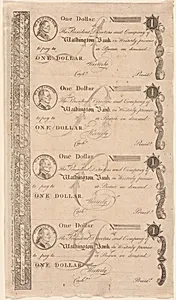 One Dollar
The President Directors and Company of
Washington Bank in Westerly promise
to pay to or Bearer on demand
ONE DOLLAR Westerly
Cashr. Presidt.
One Dollar
The President Directors and Company of
Washington Bank in Westerly promise
to pay to or Bearer on demand
ONE DOLLAR Westerly
Cashr. Presidt.
One Dollar
The President Directors and Company of
Washington Bank in Westerly promise
to pay to or Bearer on demand
ONE DOLLAR Westerly
Cashr. Presidt.
One Dollar
The President Directors and Company of
Washington Bank in Westerly promise
to pay to or Bearer on demand
ONE DOLLAR Westerly
Cashr. Presidt.